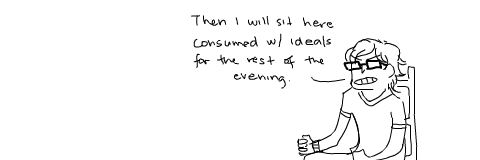 Then I will sit here
consumed w/ ideals
for the rest of the
evening.